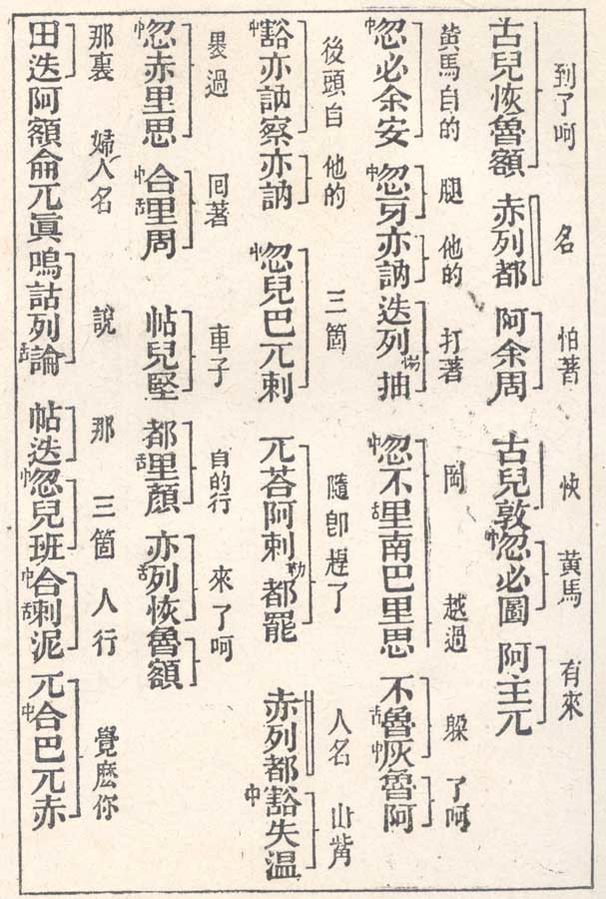 到了呵 名 怕著 快 黃馬 有來
古兒恢魯額 赤列都 阿余周 古兒敦中忽必圖 阿主兀
黃馬自的 腿 他的 打著 岡 越過 躱 了呵
中忽必余安 中忽牙亦訥 迭列惕抽 中忽不舌里南巴里思 不舌魯中灰魯阿
後頭自 他的 三箇 隨卽趕了 人名 山觜
中豁亦訥察亦訥 中忽兒巴兀剌 兀荅阿剌勒都罷 赤列都中豁失溫
過 囘著 車子 自的行 來了呵
中忽赤里思 中合舌里周 帖兒堅 都舌里顏 亦舌列恢魯額
那裏 婦人名 說 那 三箇 人行 覺麽你
田迭阿額侖兀眞嗚詁列舌論 帖迭中忽兒班中合舌剌泥兀中合巴兀赤